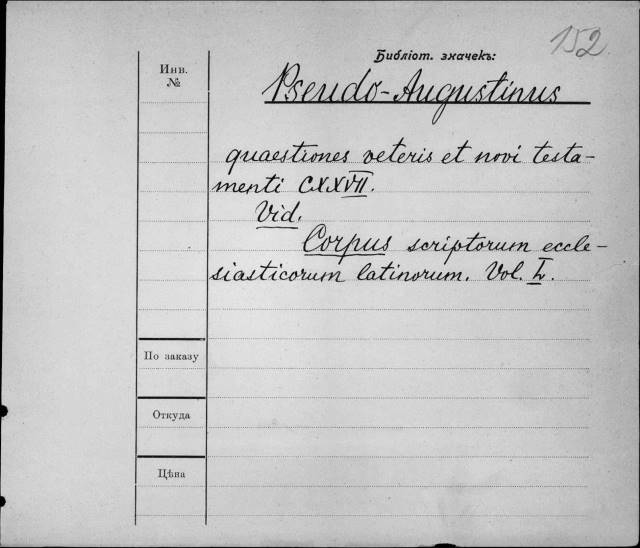 152.
Библіот. значекъ:
Инв.
№
Pseudo-Augustinus
quaestiones veteris et novi testa-
menti CXXVII.
Vid.
Corpus scriptorum eccle-
siasticorum latinorum. Vol. L.
По заказу
Откуда
Цѣна